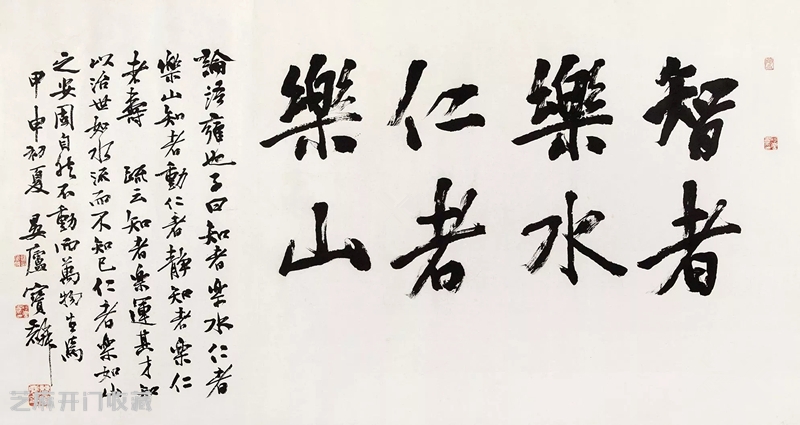 智者
樂水
仁者
樂山
論語雍也子曰知者樂水仁者
樂山知者動仁者静知者樂仁
者壽 疏云知者樂運其才知
以治世如水流而不知已仁者樂如山
之安固自然不動而萬物生焉
甲申初夏 廬寶
芝麻开门收藏